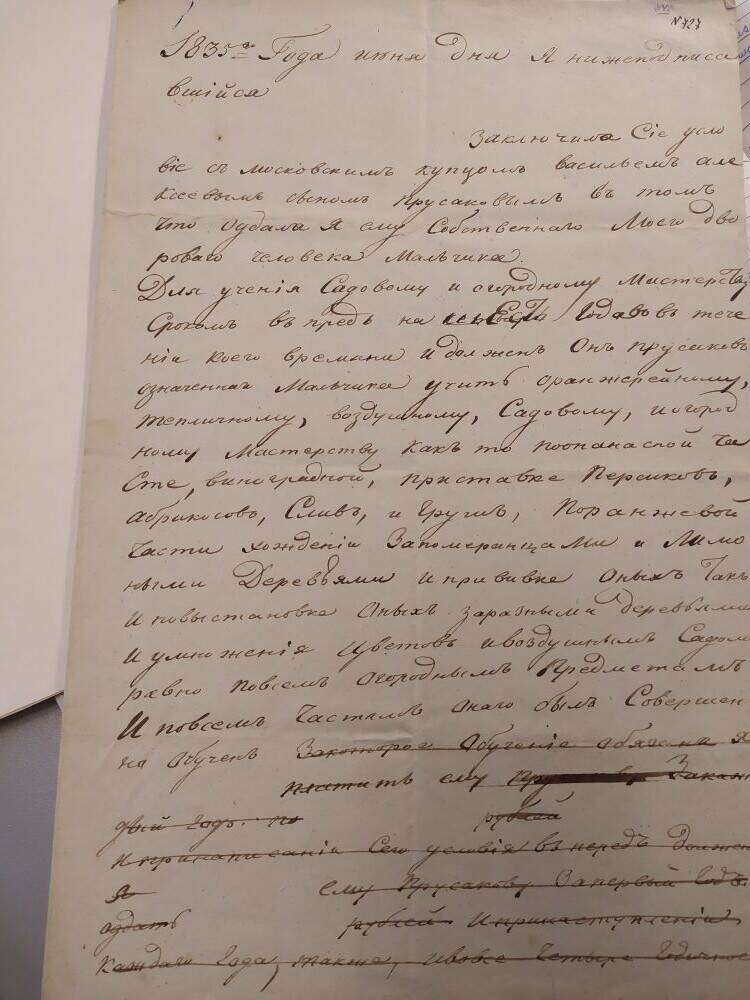 N 727
1835го Года июня дня Я нижеподписа
вшійся
Заключила Сіе усло
віе съ московскимъ купцомъ васильемъ але
ксеевымъ сыномъ Прусаковымъ въ томъ
что Оддала Я ему Собственнаго Моего дво
роваго человека Мальчика
Для ученія Садовому и огородному Мистерству
Срокомъ въ предь на шесть Годовъ въ тече
ніи коего времани И долженъ Онъ Прусаковъ
означеннаго Мальчика учить оранжерейному,
тепличному, воздушному, Садовому, и огород
ному Мастерству какъ то поонанасной ча
Сте, виноградной, приставке Персиковъ,
Абрикосовъ, Сливъ, и Грушъ, Поранжевой
части хожденіи Запомеранцами и Лимо
ными Деревьями И прививке Оныхъ Такъ
И повыставке Оныхъ заразными деревьями
И умноженія Цветовъ ивоздушнымъ Садомъ
равно Повсемъ Огороднымъ Предметамъ
И повсемъ частямъ Онаго былъ Совершен
но Обученъ Закоторое Обученіе обязана Я
платить ему Прусакову Закаж
дый Годъ по рублей
И принаписаніи Сего условія въ передъ Должен
Я ему Прусакову Запервый Годъ
аддать рублей Иприкаступленіи
каждаго Года, также, ивовсе Четыре Годичное